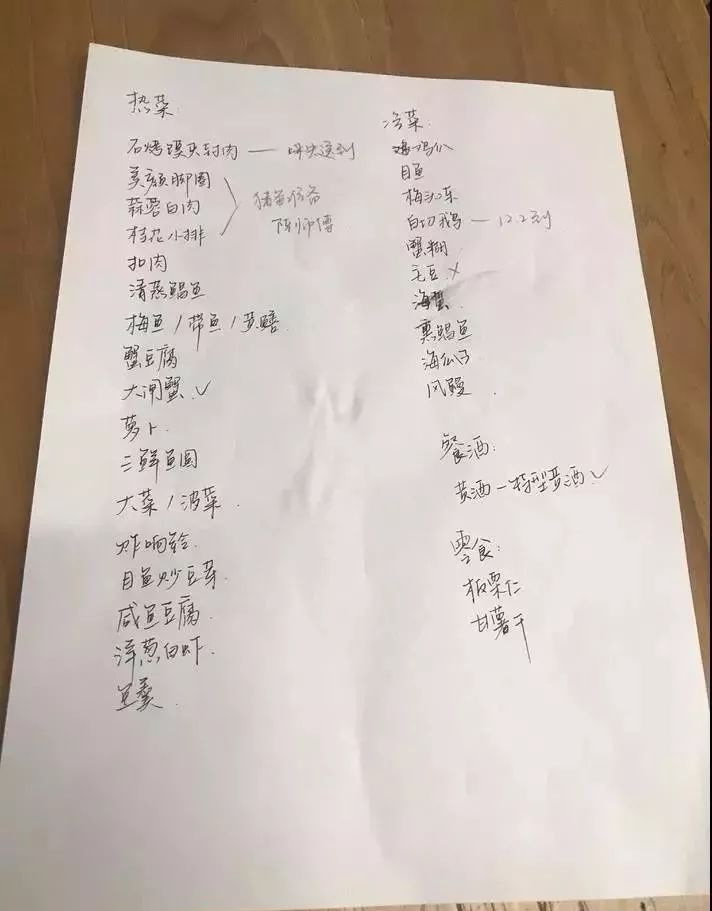 热菜
石烤馒头封肉
美颜脚圈
蒜蓉白肉
桂花小排
陈师傅
扣肉
清蒸鲳鱼
梅鱼/带鱼/黄鳝
蟹豆腐
大闸蟹 ✓
萝卜
三鲜鱼圆
大菜/菠菜
炸响铃
目鱼炒豆芽
咸鱼豆腐
洋葱白虾
鱼羹
冷菜
目鱼
梅沁冻
白切鹅 — 12.2到
蟹糊
毛豆 ×
海蜇
熏鲳鱼
海瓜子
风鳗
餐酒:
黄酒 — 特型黄酒 ✓
零食:
板栗仁
甘薯干